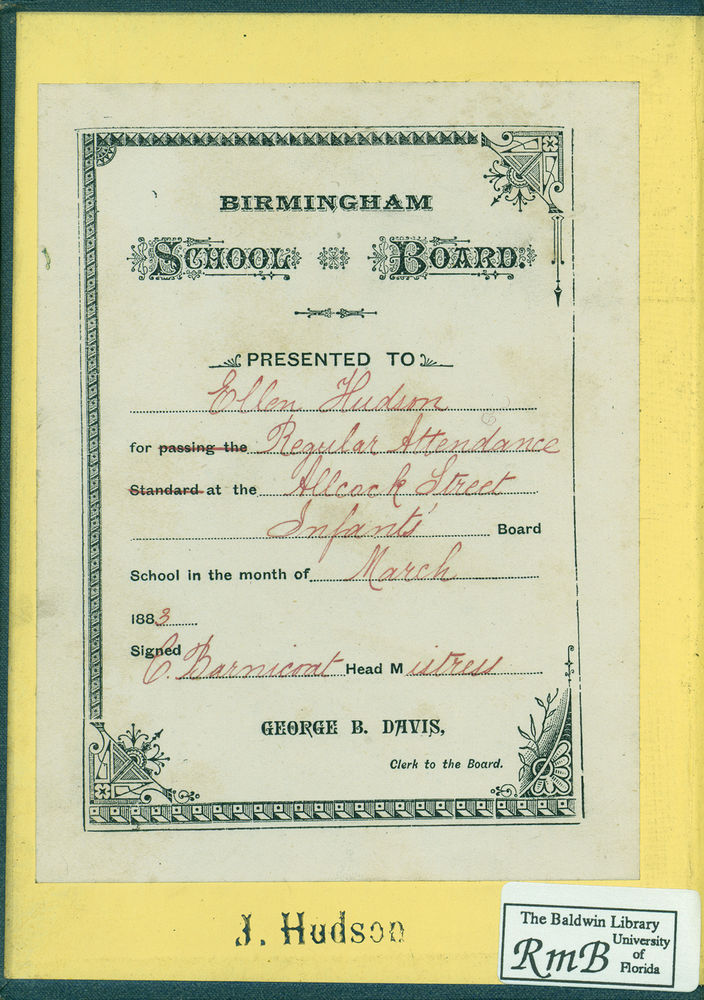 BIRMINGHAM
SCHOOL BOARD.
PRESENTED TO
Ellen Hudson
for passing the Regular Attendance
Standard at the Allcock Street
Infants' Board
School in the month of March
1883
Signed
C. Barnicoat Head Mistress
GEORGE B. DAVIS,
Clerk to the Board.
J. Hudson
The Baldwin Library
RmB University
of
Florida